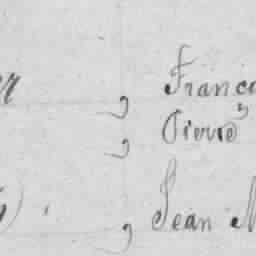 , Franç
, Pierre
, Jean M